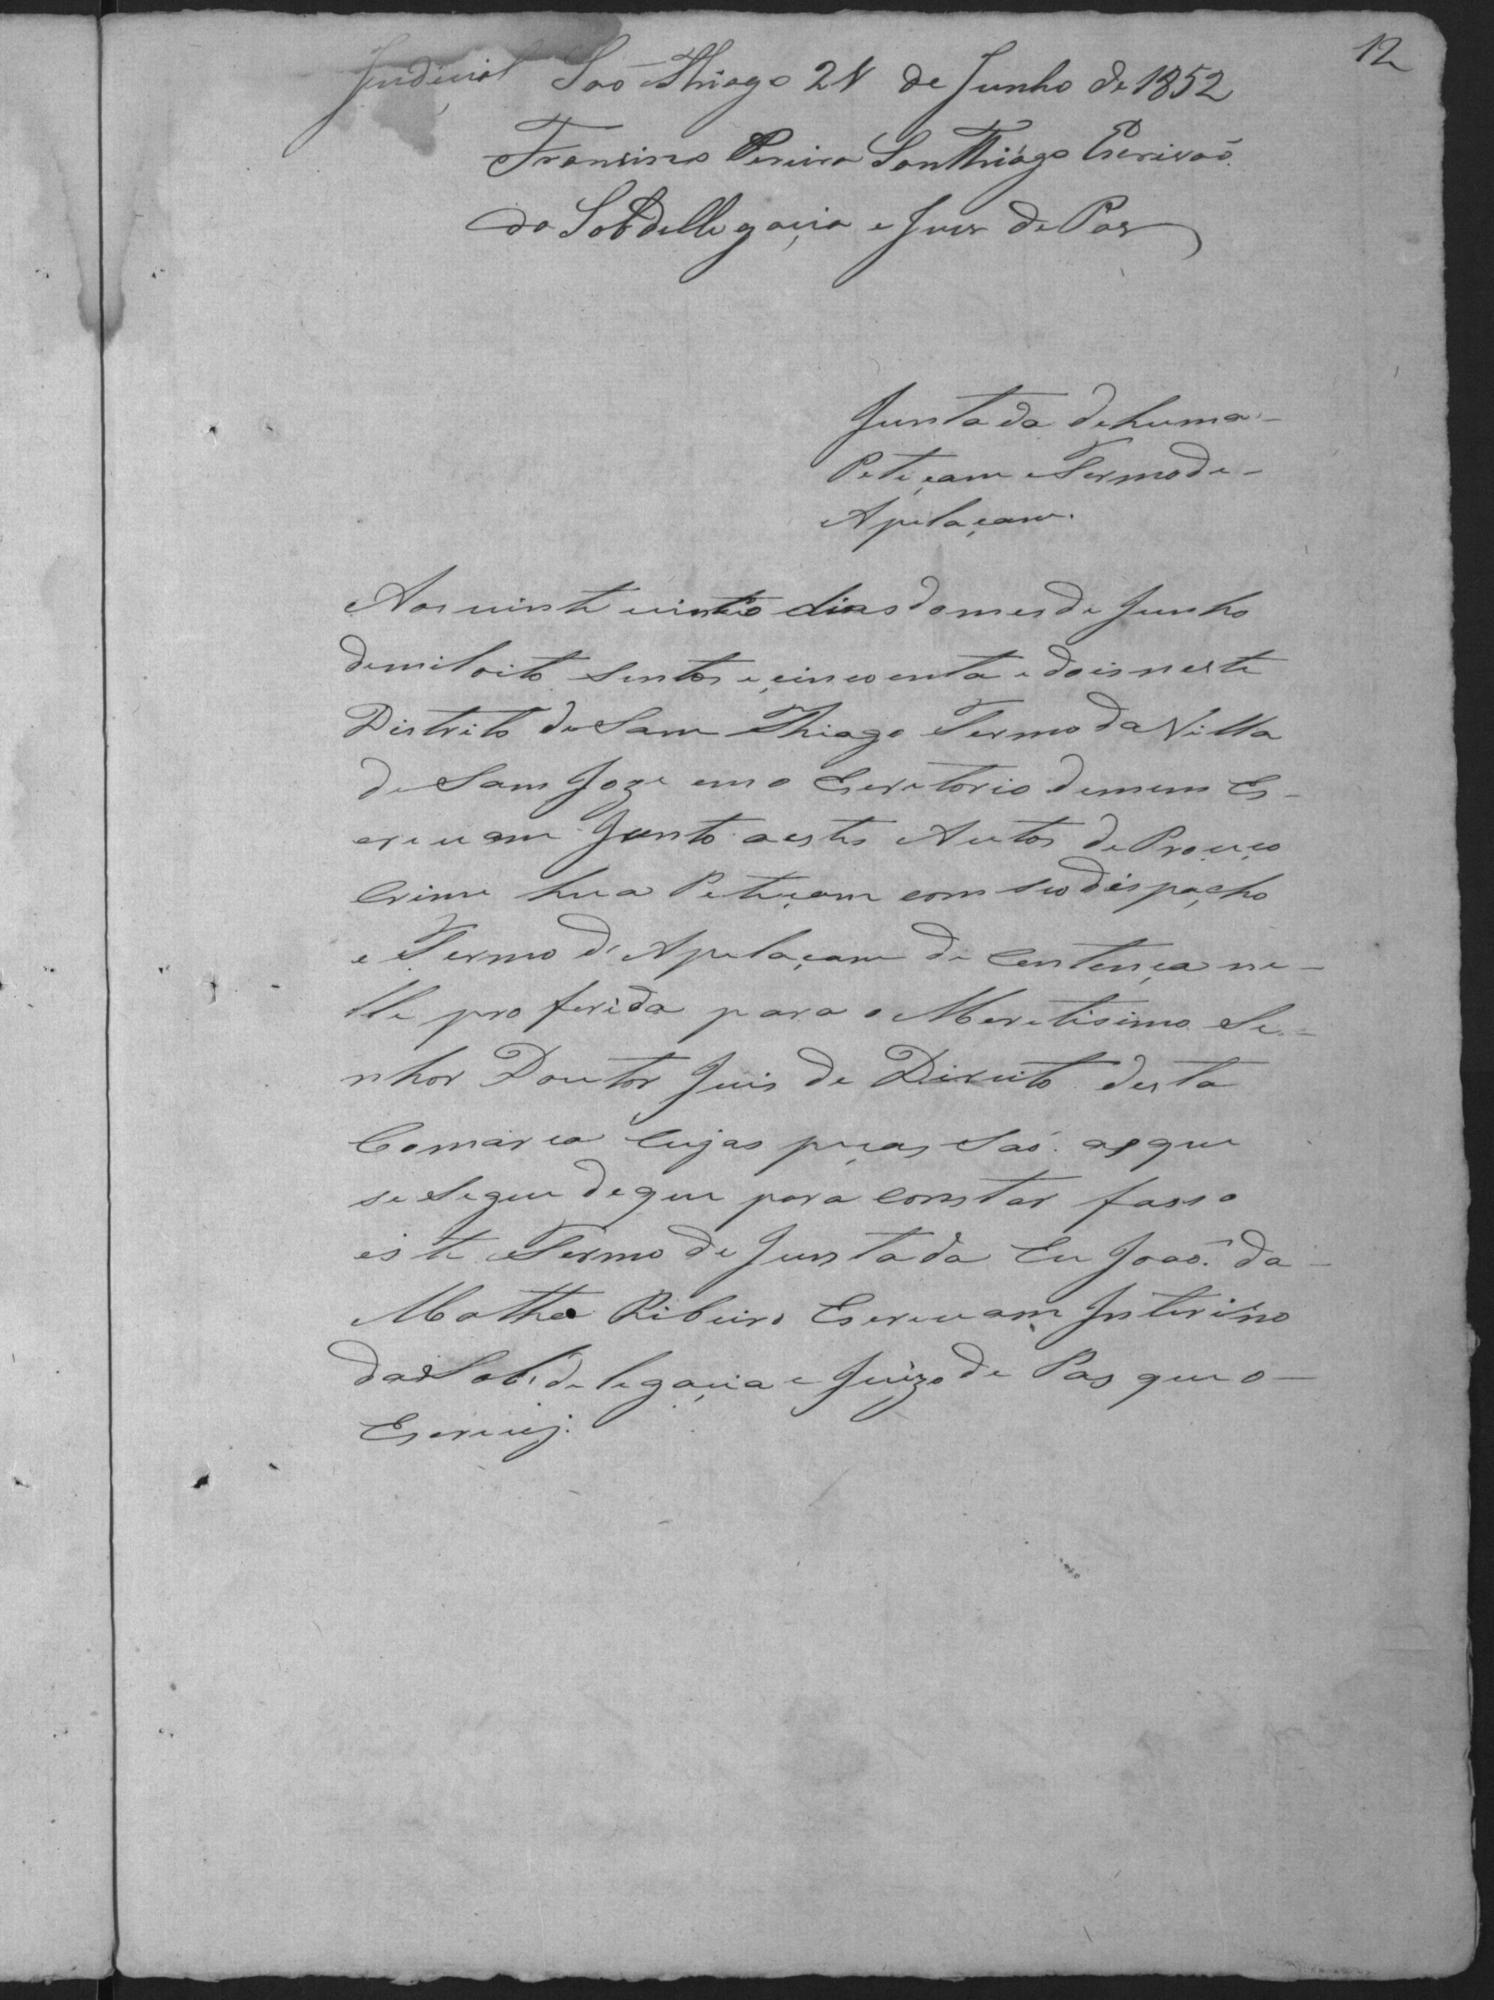 12
Judicial São Thiago 21 de Junho de 1852
Francisco Pereira SanThiago Escrivaõ
da Sobdellegaçia e Juis de Pas
Juntada dehuma
Petiçam e Termo de
Apelaçam.
Aos vinte e cinco dias do mes de Junho
de mil oito sentos e çincoenta e dois neste
Distrito de Sam Thiago Termo da Villa
de Sam Joze em o Escretorio de mim Es-
crevam Junto aestes Autos de Proceço
Crime hua Petiçam com seo dispaçho
e Termo d'Apelaçam de Centença ne-
lle proferida para o Meretisimo Se-
nhor Doutor Juis de Direito desta
Comarca Cujas peças Saõ as que
se Segue deque para constar fasso
este Termo de Juntada Eu Joaõ da
Matha Ribeiro Escrevam Interino
da Sob.delegaçia e Juizo de Pas que o
Escrevj.